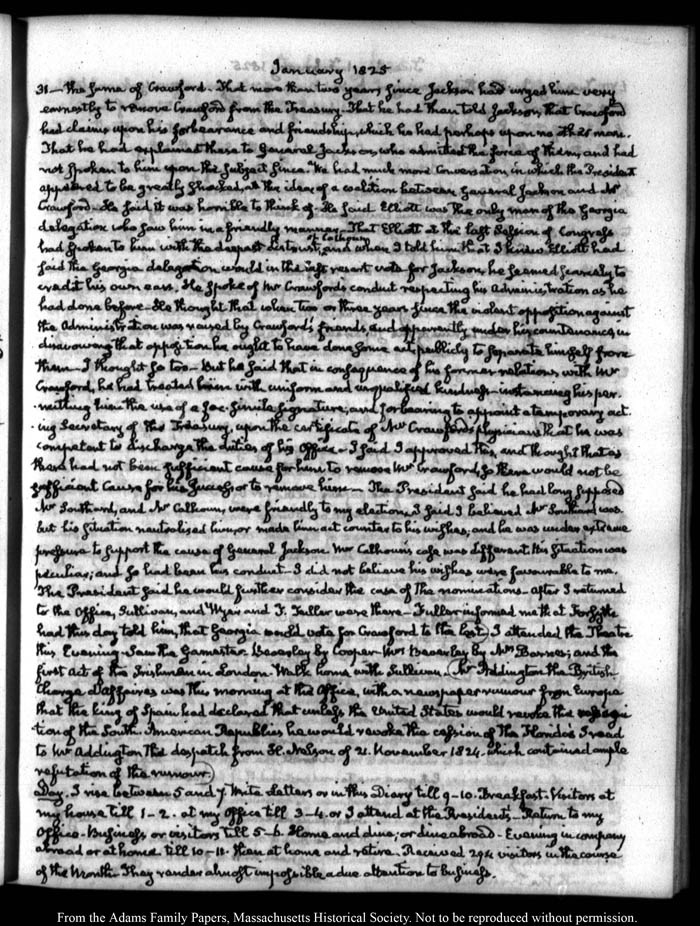 January 1825
31— the same of Crawford. That more than two years since Jackson had urged him very
earnestly to remove Crawford from the Treasury— That he had then told Jackson, that Crawford
had claims upon his forbearance and friendship, which he had perhaps upon no other man.
That he had explained these to General Jackson, who admitted the force of them, and had
not spoken to him upon the subject since. We had much more Conversation, in which the President
appeared to be greatly shocked, at the idea of a coalition between General Jackson and Mr
Crawford— He said it was horrible to think of— He said Elliott was the only man of the Georgia
delegation who saw him in a friendly manner— That Elliott at the last Session of Congress
had spoken to him with the deepest distrust of Calhoun, and when I told him that I knew Elliott had
said the Georgia delegation would in the last resort vote for Jackson, he seemed scarcely to
credit his own ears. He spoke of Mr Crawford's conduct respecting his Administration as he
had done before— He thought that when two or three years since the violent opposition against
the Administration was raised by Crawford's friends, and apparently under his countenance, in
disavowing that opposition he ought to have done some act, publicly to separate himself from
them— I thought so too— But he said that in consequence of his former relations with Mr
Crawford, he had treated him with uniform and unqualified kindness— instancing his per-
mitting him the use of a fac-simile signature, and forbearing to appoint a temporary act-
ing Secretary of the Treasury, upon the certificate of Mr Crawford's physicians that he was
competent to discharge the duties of his Office— I said I approved this, and thought that as
there had not been sufficient cause for him to remove Mr Crawford, so there would not be
sufficient Cause for his Successor to remove him— The President said he had long supposed
Mr Southard, and Mr Calhoun, were friendly to my election. I said I believed Mr Southard was
but his situation neutralised him, or made him act counter to his wishes, and he was under extreme
pressure to support the cause of General Jackson. Mr Calhoun's case was different. His situation was
peculiar; and so had been his conduct— I did not believe his wishes were favourable to me.
The President said he would further consider the case of the nominations— After I returned
to the Office, Sullivan, and Wyer and T. Fuller were there— Fuller informed me that Forsyth
had this day told him, that Georgia would vote for Crawford to the last. I attended the Theatre
this Evening— Saw the Gamester. Beverley by Cooper— Mrs Beverley by Mrs Barnes; and the
first Act of the Irishman in London. Walk home with Sullivan. (Mr Addington the British
Chargé d'Affaires was this morning at the Office, with a newspaper rumour from Europe
that the king of Spain had declared that unless the United States would revoke the recogni
tion of the South American Republics he would revoke the cession of the Florida's. I read
to Mr Addington the despatch from H. Nelson of 21. November 1824. which contained ample
refutation of the rumour.)
Day. I rise between 5 and 7. Write Letters or in this Diary till 9–10. Breakfast. Visitors at
my house till 1–2. at my Office till 3–4. or I attend at the President's— Return to my
Office— Business or visitors till 5–6. Home and dine; or dine abroad— Evening in company
abroad or at home till 10–11. then at home and retire. Received 294 visitors in the course
of the Month. They render almost impossible a due attention to business.
From the Adams Family Papers, Massachusetts Historical Society. Not to be reproduced without permission.